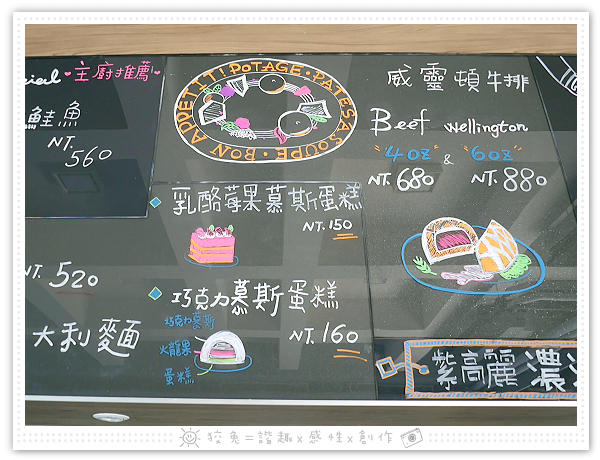 cial ♥主廚推薦♥
鮭魚
NT. 560
NT. 520
大利麵
BON APPETIT! POTAGE・PATES & SOUPE・
乳酪莓果慕斯蛋糕
NT. 150
巧克力慕斯蛋糕
NT. 160
巧克力慕斯
火龍果
蛋糕
威靈頓牛排
Beef Wellington
"4oz" & "6oz"
NT. 680 NT. 880
紫高麗濃
狡兔=諧趣x感性x創作